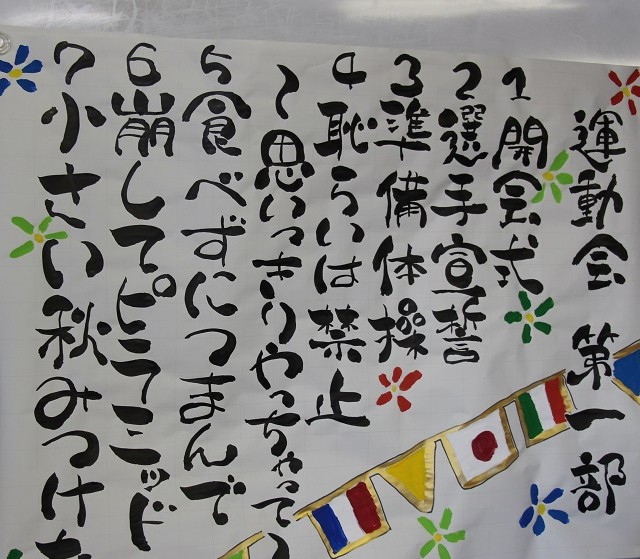 運動会 第一部
1 開会式
2 選手宣誓
3 準備体操
4 恥らいは禁止
〜思いっきりやっちゃって〜
5 食べずにつまんで
6 崩してピラミッド
7 小さい秋みつけた